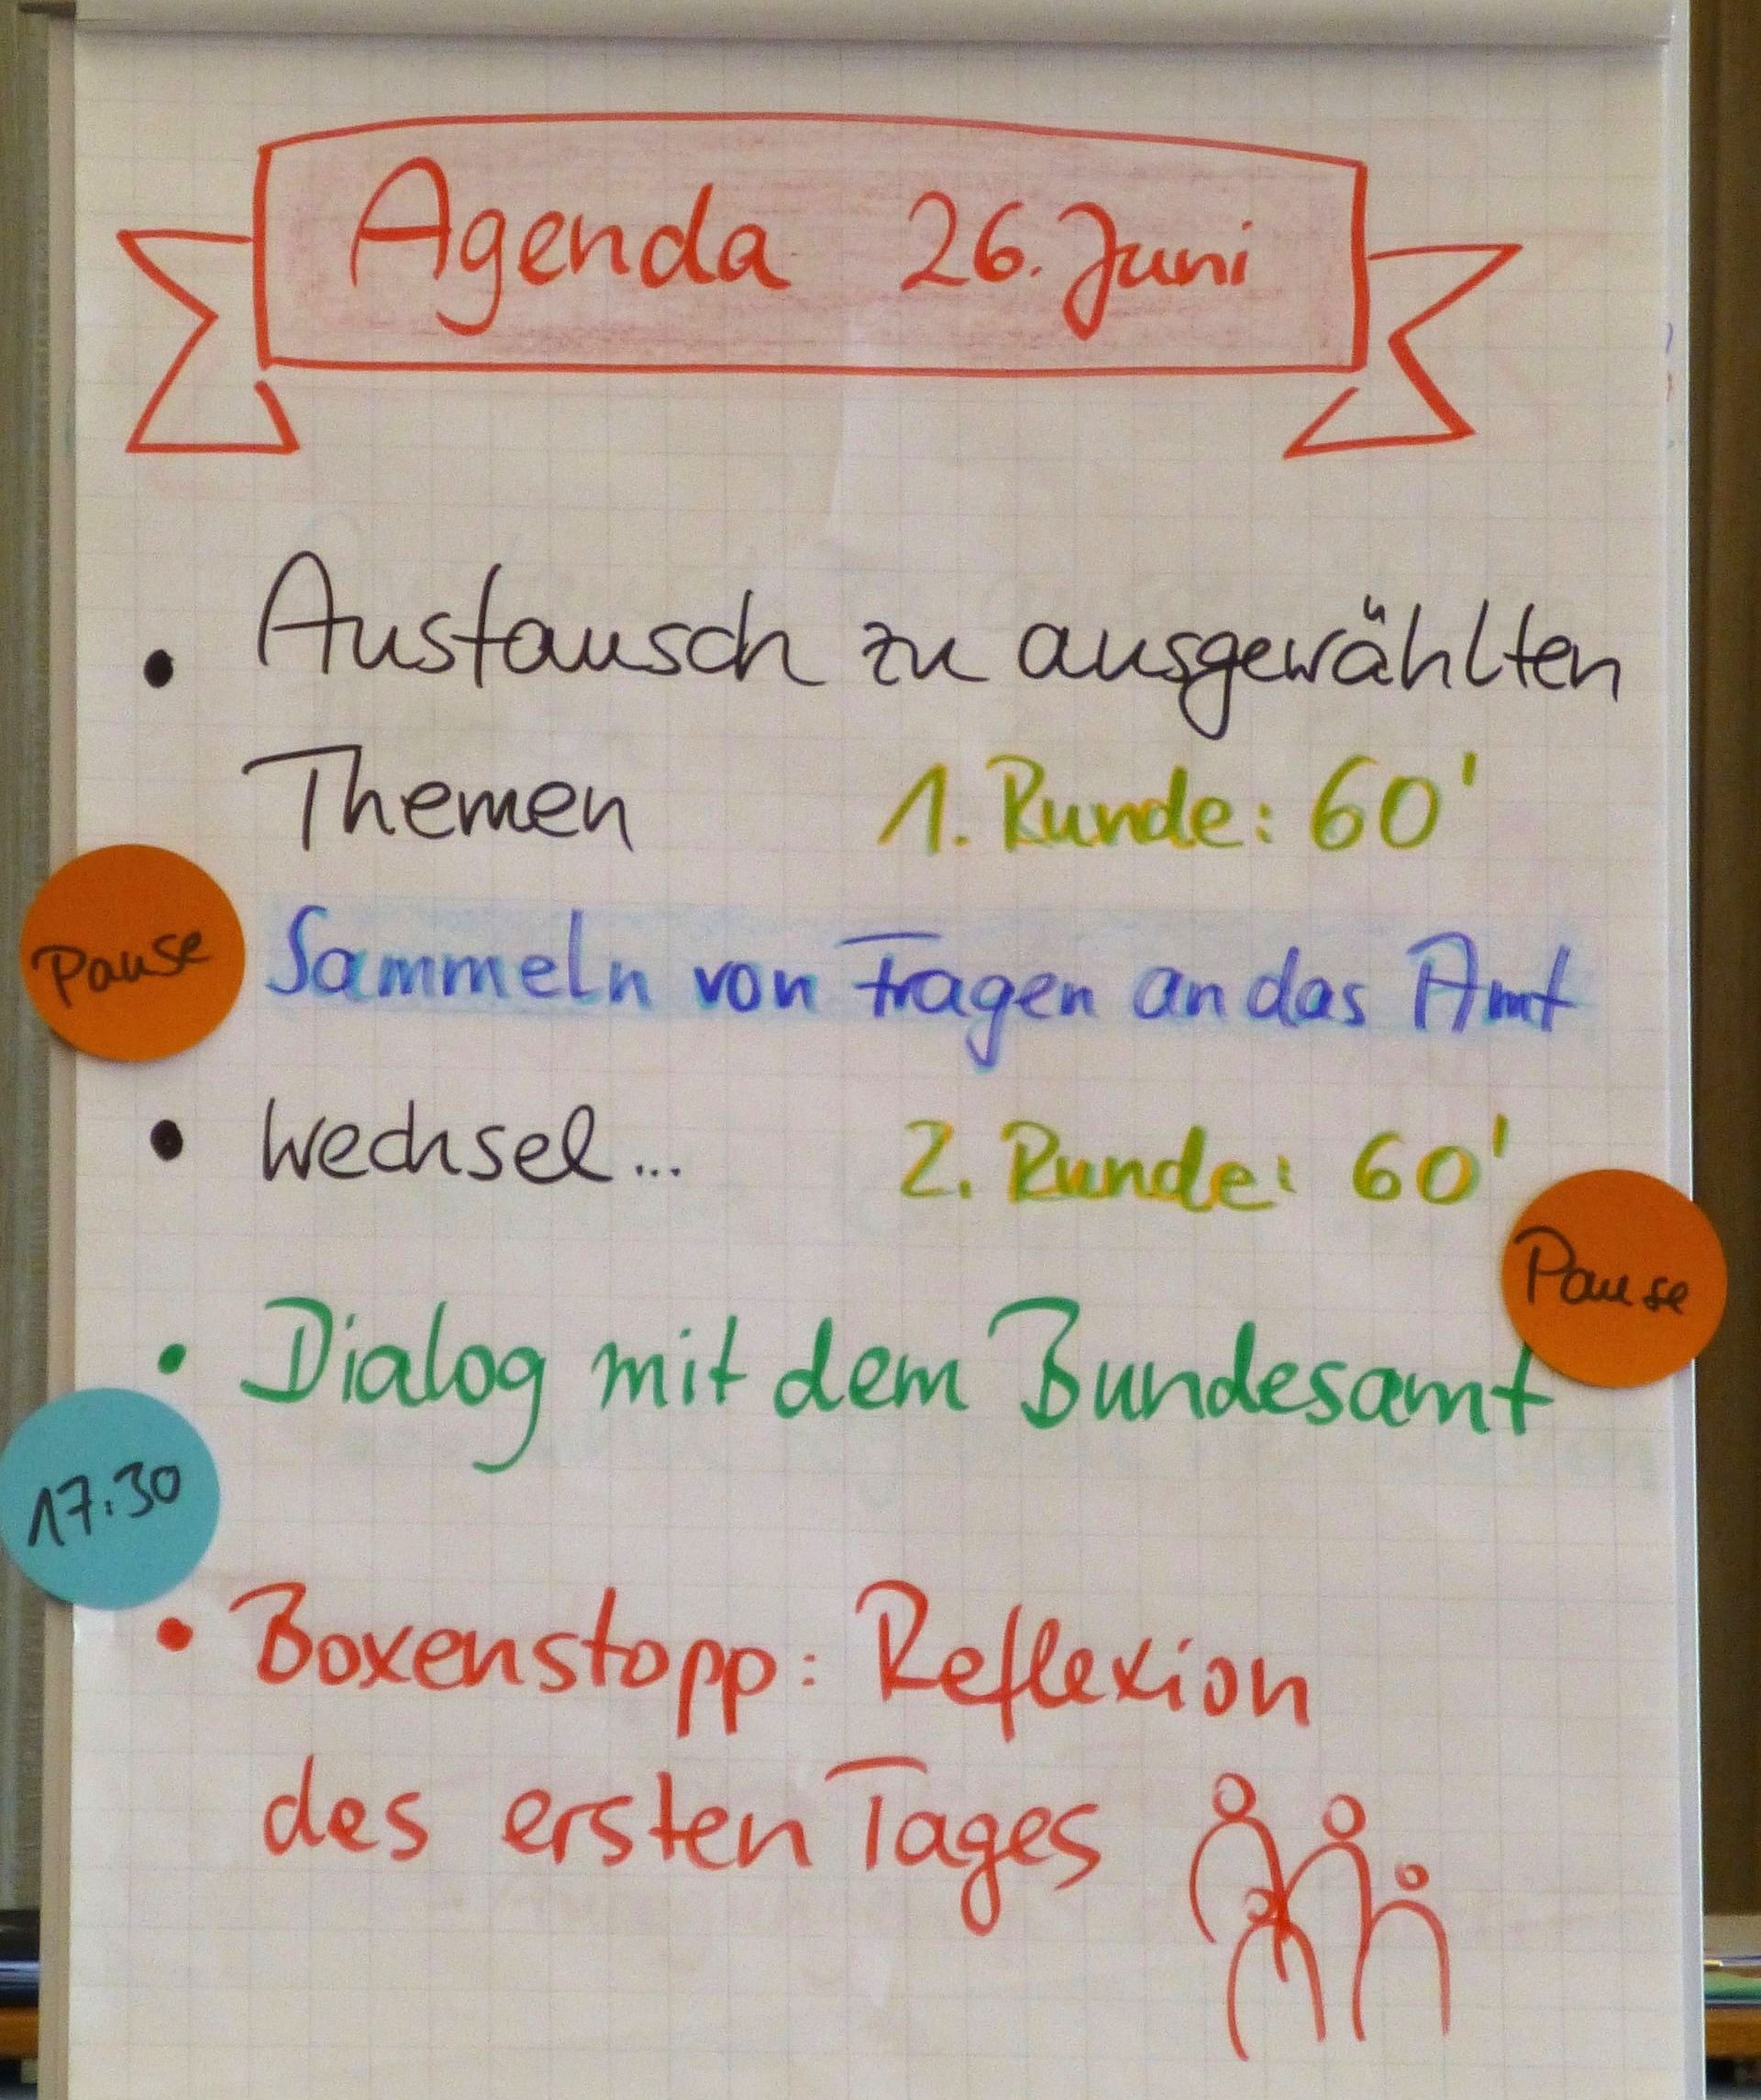 Agenda 26. Juni
• Austausch zu ausgewählten
Themen 1. Runde: 60'
Pause Sammeln von Fragen an das Amt
• Wechsel... 2. Runde: 60'
Pause
• Dialog mit dem Bundesamt
17:30
• Boxenstopp: Reflexion
des ersten Tages